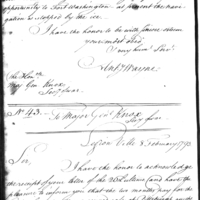 opportunity to Fort Washington as present the navi
gation is stopped by the ice.
I have the honor to be with sincere esteem
your most obt.
& very hum. Servt.
Anty Wayne.
The Honble
Major Genl Knox
Secy of War
No 43. To Major Genl Knox
Secy of War
Legion Ville 8 February 1793
Sir,
I have the honor to acknowledge
the receipt of your letter of the 26th Ultimo (and have the
pleasure to inform you that the six months pay for the